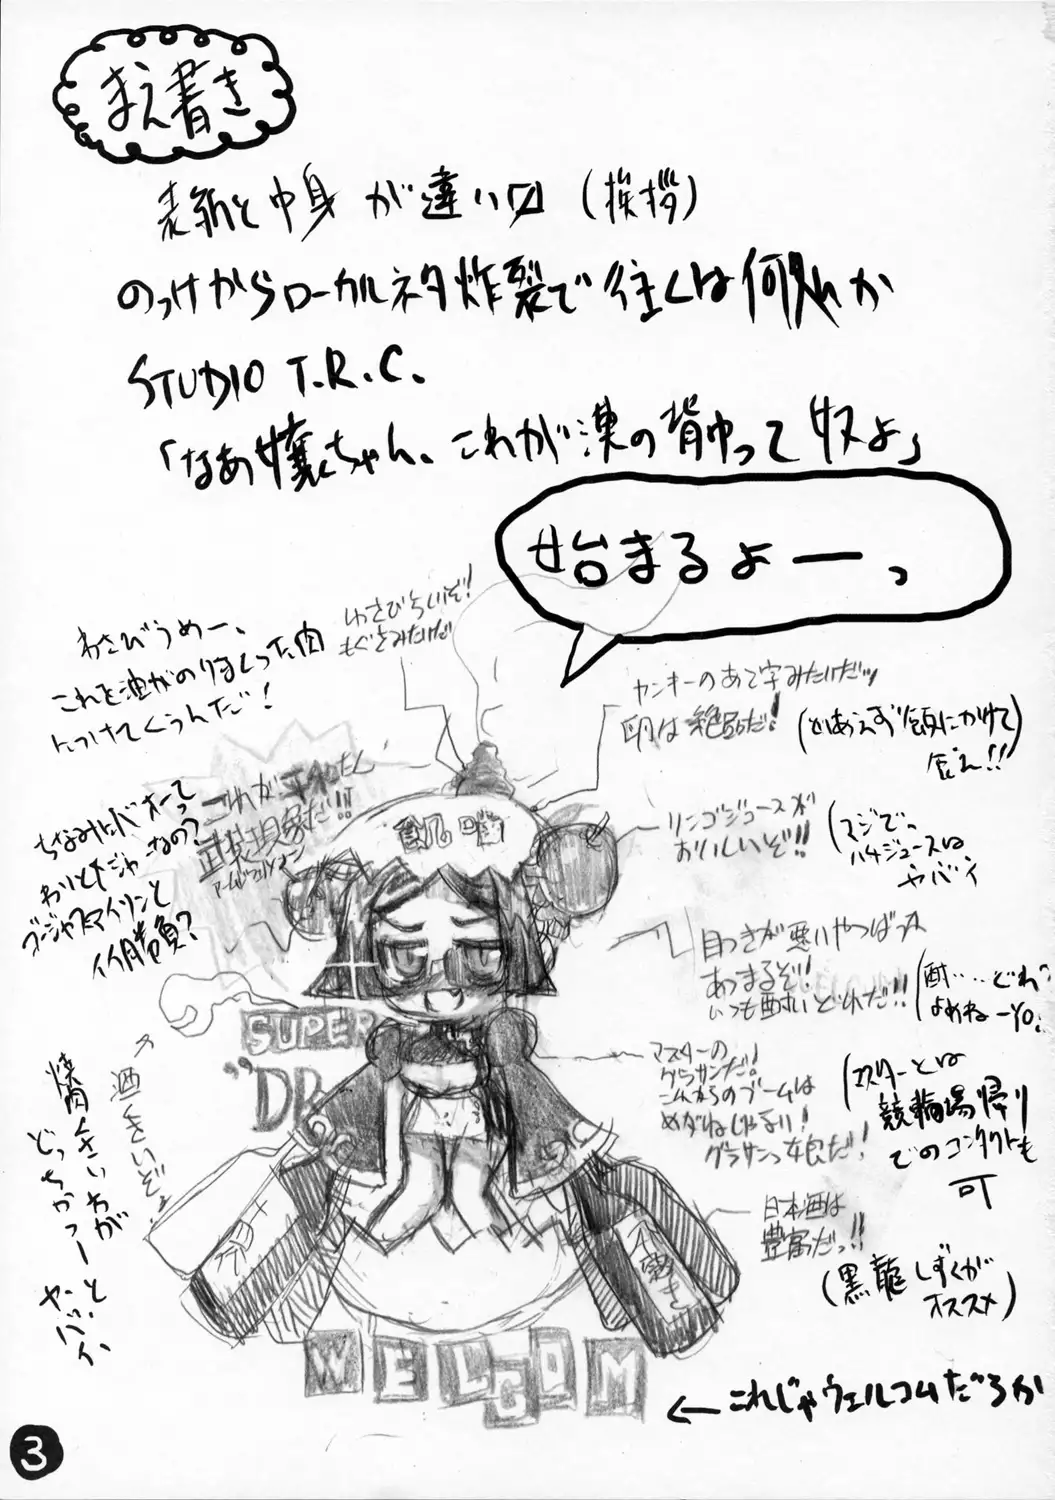 まえ書き
表紙と中身が違い〼(挨拶)
のっけからローカルネタ炸裂で往くは何処か
STUDIO T.R.C.
「なあ嬢ちゃん、これが漢の背中って奴よ」
始まるよーっ
わさびうめー、
これを油がのりまくった肉
につけてくうんだ!
わさびらいいぞ!
もぐさみたいだ
ヤンキーのあて字みたいだッ
卵は絶品だ!
(とりあえず飯にかけて
食え!!)
これが平和たん
武装現象だ!!
アームドフェノメノン
ちなみにバオーって
わりとメジャーなの?
リンゴジュースが
おいしいぞ!!
(マジで。
ハチジュースは
ヤバイ
目つきが悪いやつばっか
あつまるぞ!
いつも酔いどれだ!!
(酔……どれ?
よめねーYO!
SUPER
"DR
マスターの
グラサンだ!
これからのブームは
めがねじゃない!
グラサンっ娘だ!
(マスターとは
競輪場帰り
でのコンタクトも
可
酒くさいぞ。
焼肉くさいわが
どっちかっつーと。
ヤバイ
日本酒は
豊富だっ!!
(黒龍しずくが
オススメ)
WELCOM
←これじゃウェルコムだろが
3